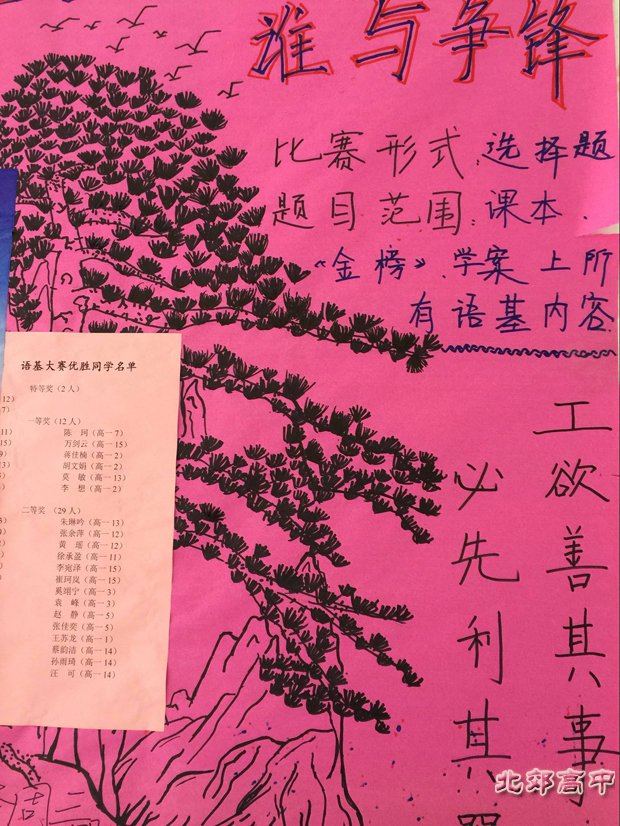 谁与争锋
比赛形式:选择题
题目范围:课本.
《金榜》、学案上所
有语基内容
工欲善其事
必先利其器
语基大赛优胜同学名单
特等奖(2人)
12)
7)
一等奖(12人)
11) 陈 珂(高一7)
15) 万剑云(高一15)
蒋佳楠(高一2)
胡文娟(高一2)
莫 敏(高一13)
李 想(高一2)
二等奖 (29人)
朱琳吟(高一13)
张余萍(高一12)
黄 瑶(高一12)
徐承盈(高一11)
李宛泽(高一15)
崔珂岚(高一15)
奚翊宁(高一3)
袁 峰(高一3)
赵 静(高一5)
张佳奕(高一5)
王苏龙(高一1)
蔡韵洁(高一14)
孙雨琦(高一14)
汪 可(高一14)
北郊高中